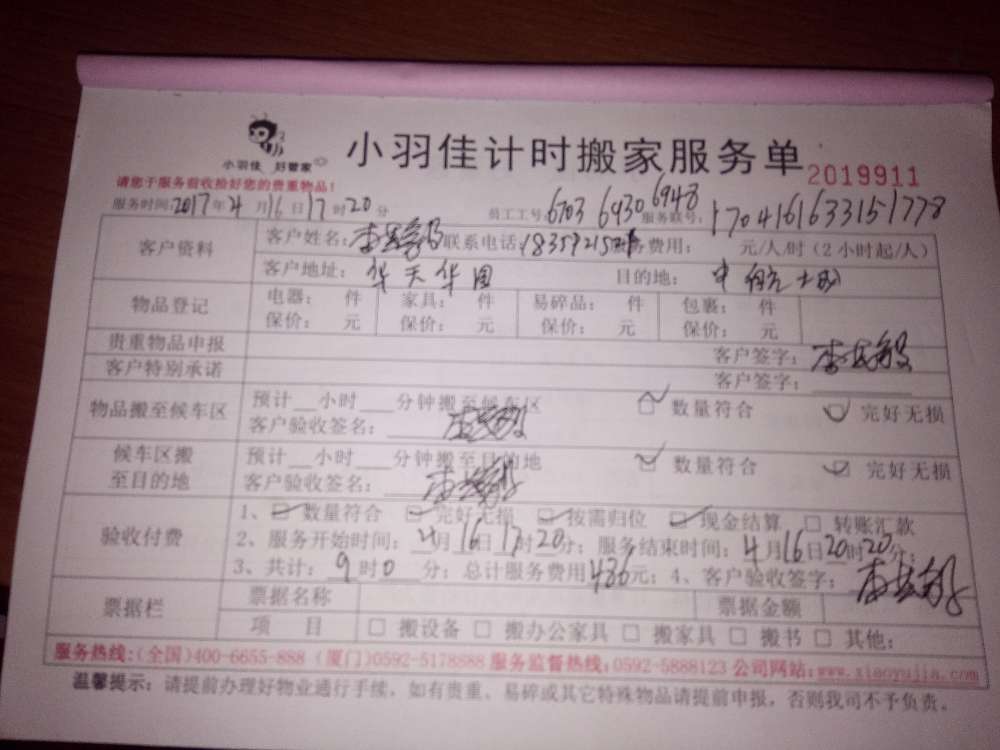 小羽佳 好管家
小羽佳计时搬家服务单 2019911
请您于服务前收捡好您的贵重物品！
服务时间：2017年4月16日17时20分 员工工号：6703 6930 6948 服务联号：1704161633151778
客户资料 客户姓名： 联系电话：服务费用： 元/人/时（2小时起/人）
客户地址：华天华国 目的地：中航城
物品登记 电器： 件 家具： 件 易碎品： 件 包裹： 件
保价： 元 保价： 元 保价： 元 保价： 元
贵重物品申报 客户签字：
客户特别承诺 客户签字：
物品搬至候车区 预计__小时__分钟搬至候车区 数量符合 完好无损
客户验收签名：
候车区搬至目的地 预计__小时__分钟搬至目的地 数量符合 完好无损
客户验收签名：
验收付费 1、数量符合 完好无损 按需归位 现金结算 转账汇款
2、服务开始时间：4月16日17时20分；服务结束时间：4月16日20时20分；
3、共计：9时0分；总计服务费用486元；4、客户验收签字：
票据栏 票据名称 票据金额
项 目 搬设备 搬办公家具 搬家具 搬书 其他：
服务热线：（全国）400-6655-888 （厦门）0592-5178888 服务监督热线：0592-5888123 公司网站：www.xiaoyujia.com
温馨提示：请提前办理好物业通行手续，如有贵重、易碎或其它特殊物品请提前申报，否则我司不予负责。